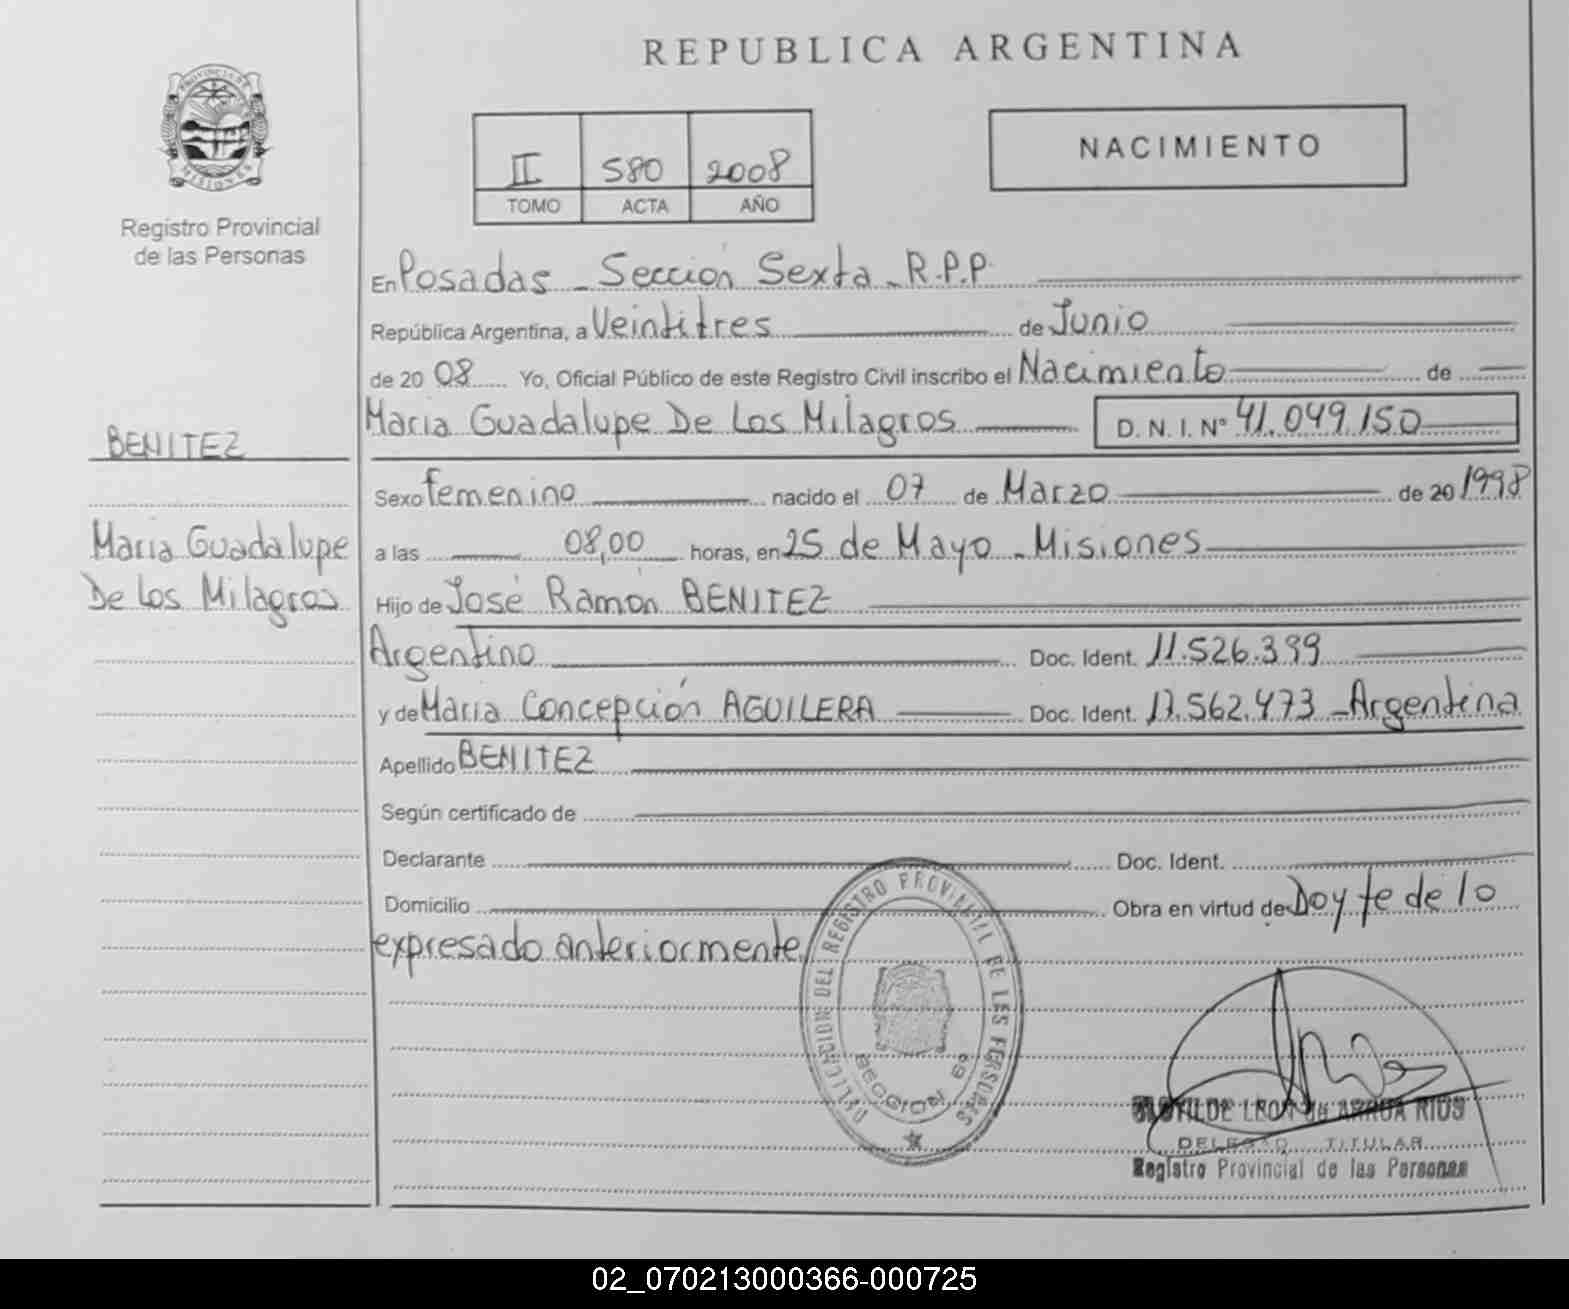 REPUBLICA ARGENTINA
PROVINCIA DE
MISIONES
Registro Provincial
de las Personas
II 580 2008
TOMO ACTA AÑO
NACIMIENTO
En Posadas - Sección Sexta - R.P.P.
República Argentina, a Veintitres de Junio
de 20 08 Yo, Oficial Público de este Registro Civil inscribo el Nacimiento de
Maria Guadalupe De Los Milagros D. N. I. Nº 41.049.150
BENITEZ
Sexo femenino nacido el 07 de Marzo de 20 1998
Maria Guadalupe
De Los Milagros
a las 08,00 horas, en 25 de Mayo - Misiones
Hijo de José Ramón BENITEZ
Argentino Doc. Ident. 11.526.399
y de Maria Concepción AGUILERA Doc. Ident. 17.562.473 - Argentina
Apellido BENITEZ
Según certificado de
Declarante Doc. Ident.
Domicilio Obra en virtud de Doy fe de lo
expresado anteriormente
DELEGACION DEL REGISTRO PROVINCIAL DE LAS PERSONAS
SECCION 6ª
ARRUA RIOS
TITULAR
Registro Provincial de las Personas
02_070213000366-000725